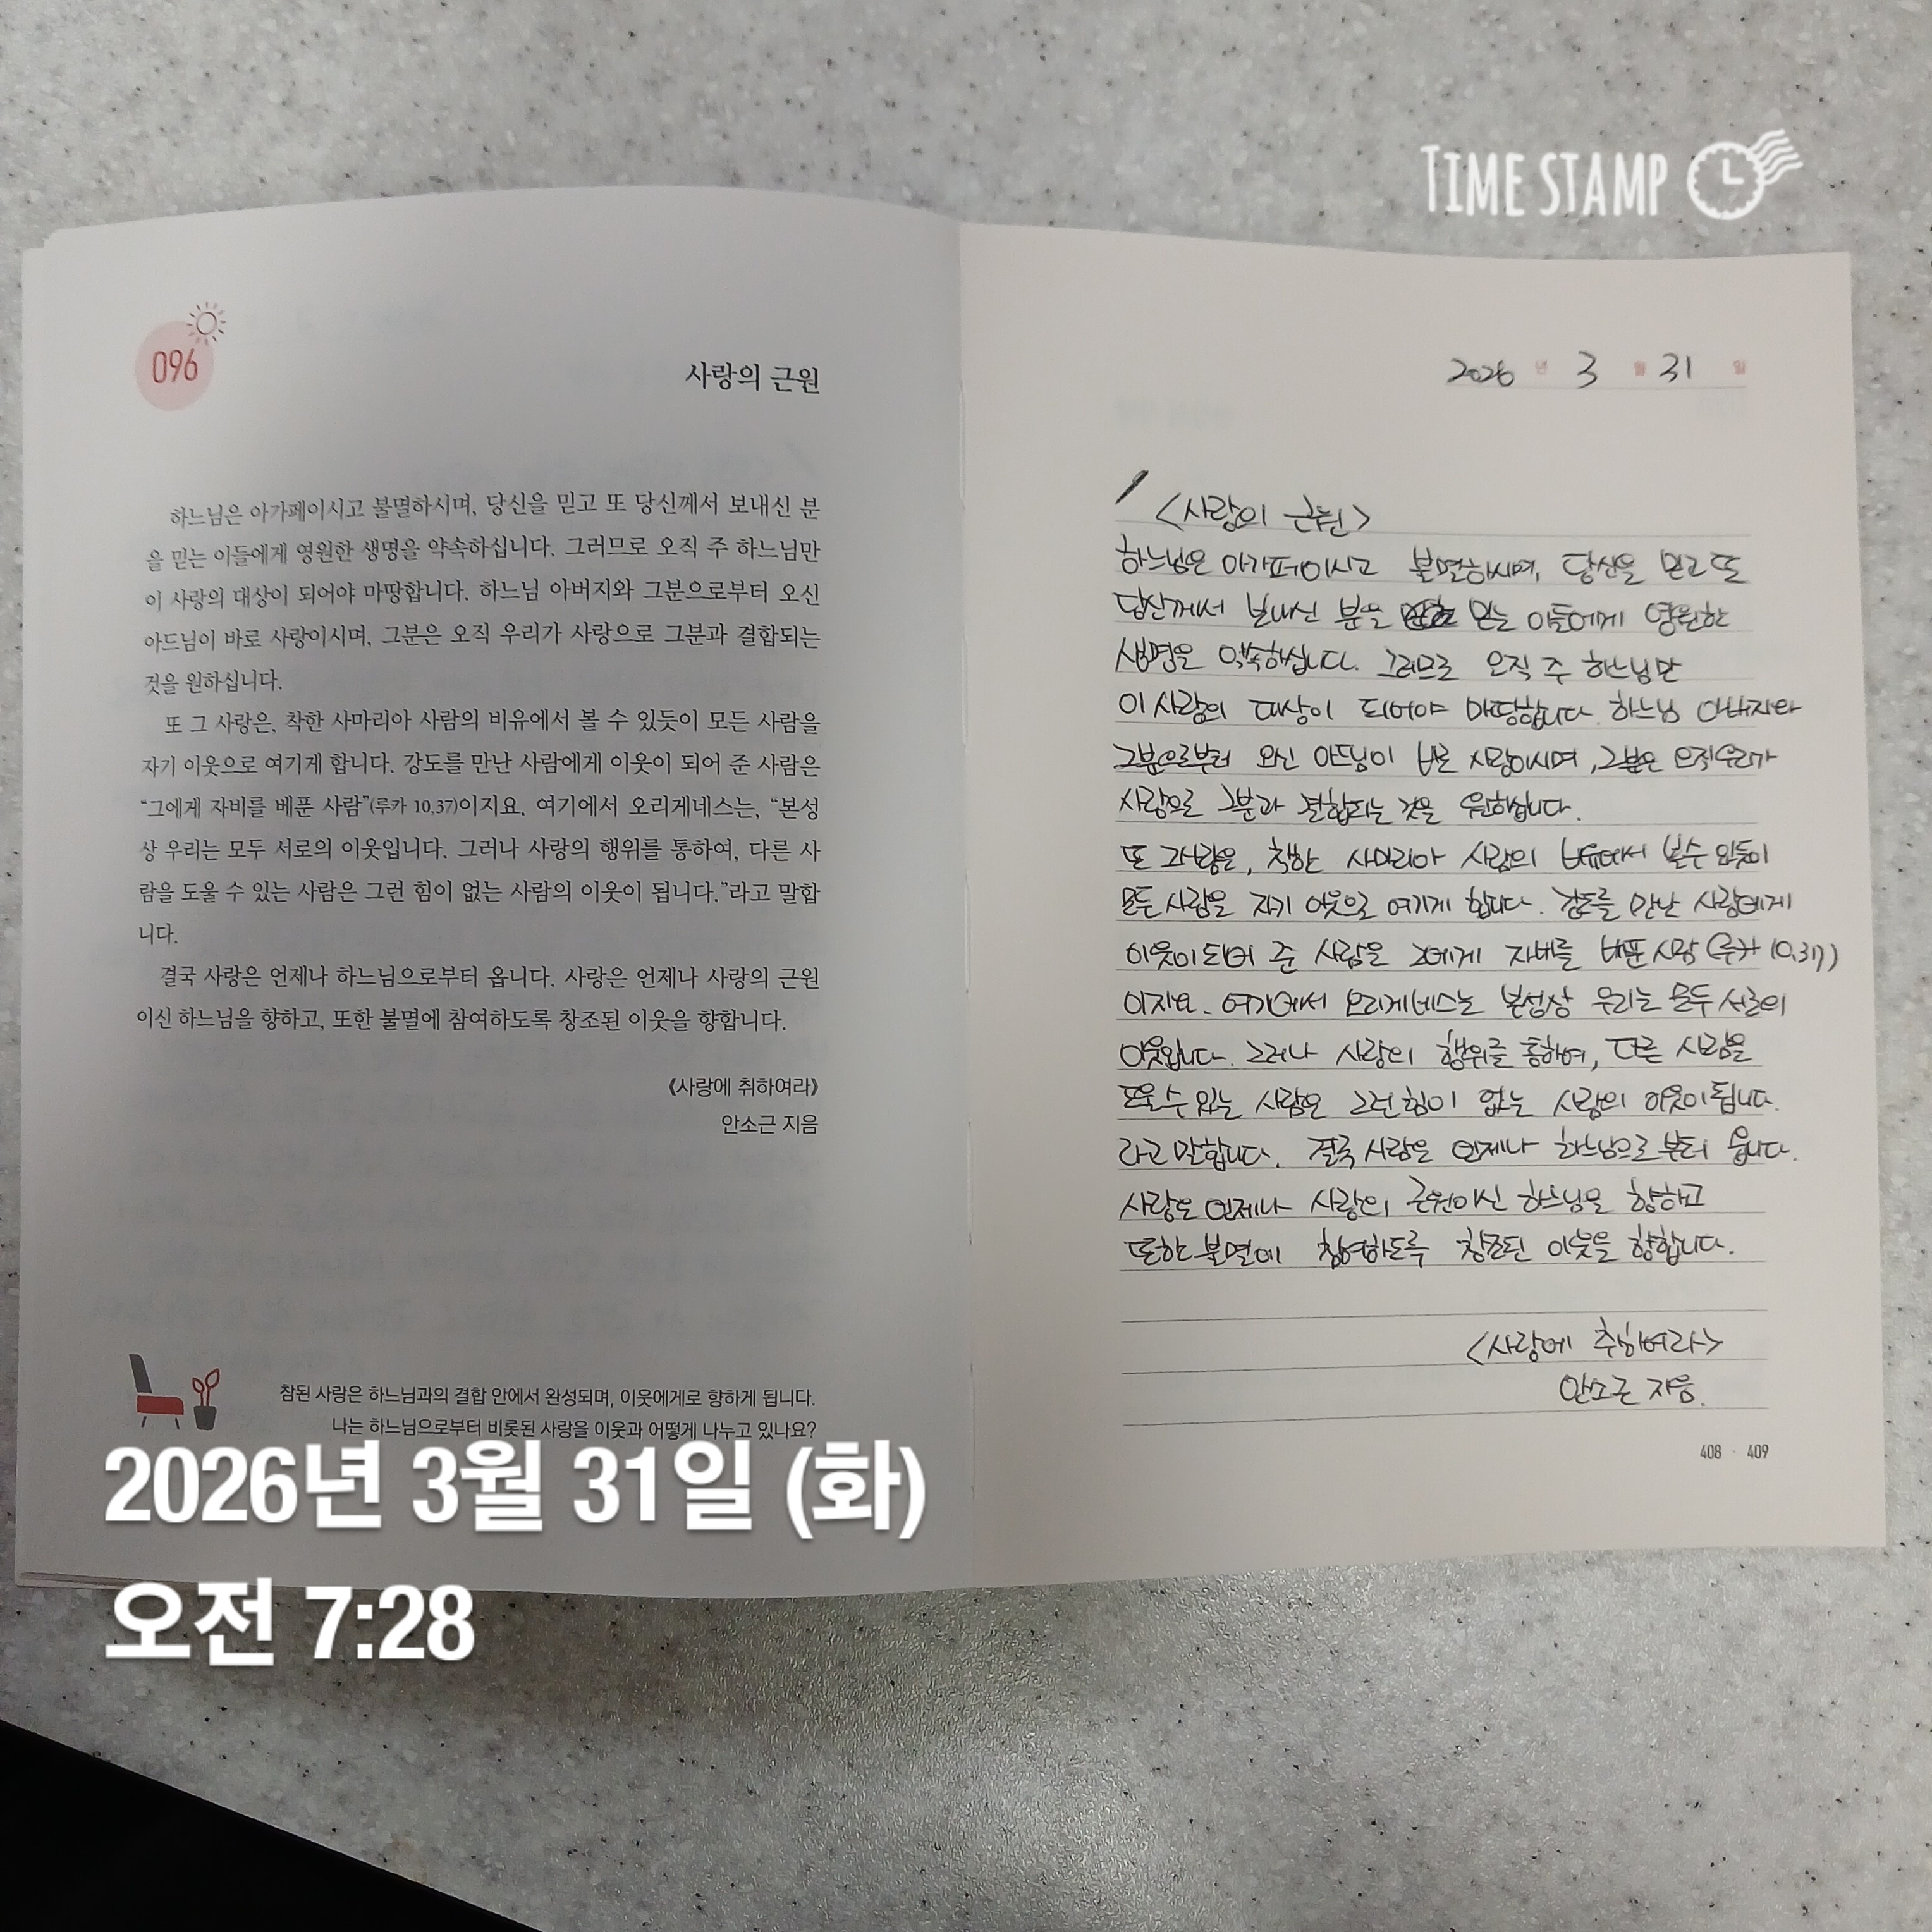 TIME STAMP
096
사랑의 근원
하느님은 아가페이시고 불멸하시며, 당신을 믿고 또 당신께서 보내신 분
을 믿는 이들에게 영원한 생명을 약속하십니다. 그러므로 오직 주 하느님만
이 사랑의 대상이 되어야 마땅합니다. 하느님 아버지와 그분으로부터 오신
아드님이 바로 사랑이시며, 그분은 오직 우리가 사랑으로 그분과 결합되는
것을 원하십니다.
또 그 사랑은, 착한 사마리아 사람의 비유에서 볼 수 있듯이 모든 사람을
자기 이웃으로 여기게 합니다. 강도를 만난 사람에게 이웃이 되어 준 사람은
“그에게 자비를 베푼 사람”(루카 10,37)이지요. 여기에서 오리게네스는, “본성
상 우리는 모두 서로의 이웃입니다. 그러나 사랑의 행위를 통하여, 다른 사
람을 도울 수 있는 사람은 그런 힘이 없는 사람의 이웃이 됩니다.”라고 말합
니다.
결국 사랑은 언제나 하느님으로부터 옵니다. 사랑은 언제나 사랑의 근원
이신 하느님을 향하고, 또한 불멸에 참여하도록 창조된 이웃을 향합니다.
《사랑에 취하여라》
안소근 지음
참된 사랑은 하느님과의 결합 안에서 완성되며, 이웃에게로 향하게 됩니다.
나는 하느님으로부터 비롯된 사랑을 이웃과 어떻게 나누고 있나요?
2026 년 3 월 31 일
<사랑의 근원>
하느님은 아가페이시고 불멸하시며, 당신을 믿고 또
당신께서 보내신 분을 믿는 이들에게 영원한
생명을 약속하십니다. 그러므로 오직 주 하느님만
이 사랑의 대상이 되어야 마땅합니다. 하느님 아버지와
그분으로부터 오신 아드님이 바로 사랑이시며, 그분은 오직우리가
사랑으로 그분과 결합되는 것을 원하십니다.
또 그사랑은, 착한 사마리아 사람의 비유에서 볼수 있듯이
모든 사람을 자기 이웃으로 여기게 합니다. 강도를 만난 사람에게
이웃이 되어 준 사람은 그에게 자비를 베푼 사람 (루카 10,37)
이지요. 여기에서 오리게네스는 본성상 우리는 모두 서로의
이웃입니다. 그러나 사랑의 행위를 통하여, 다른 사람을
도울수 있는 사람은 그런힘이 없는 사람의 이웃이 됩니다.
라고 말합니다. 결국 사랑은 언제나 하느님으로부터 옵니다.
사랑은 언제나 사랑의 근원이신 하느님을 향하고
또한 불멸에 참여하도록 창조된 이웃을 향합니다.
<사랑에 취하여라>
안소근 지음.
408 · 409
2026년 3월 31일 (화)
오전 7:28